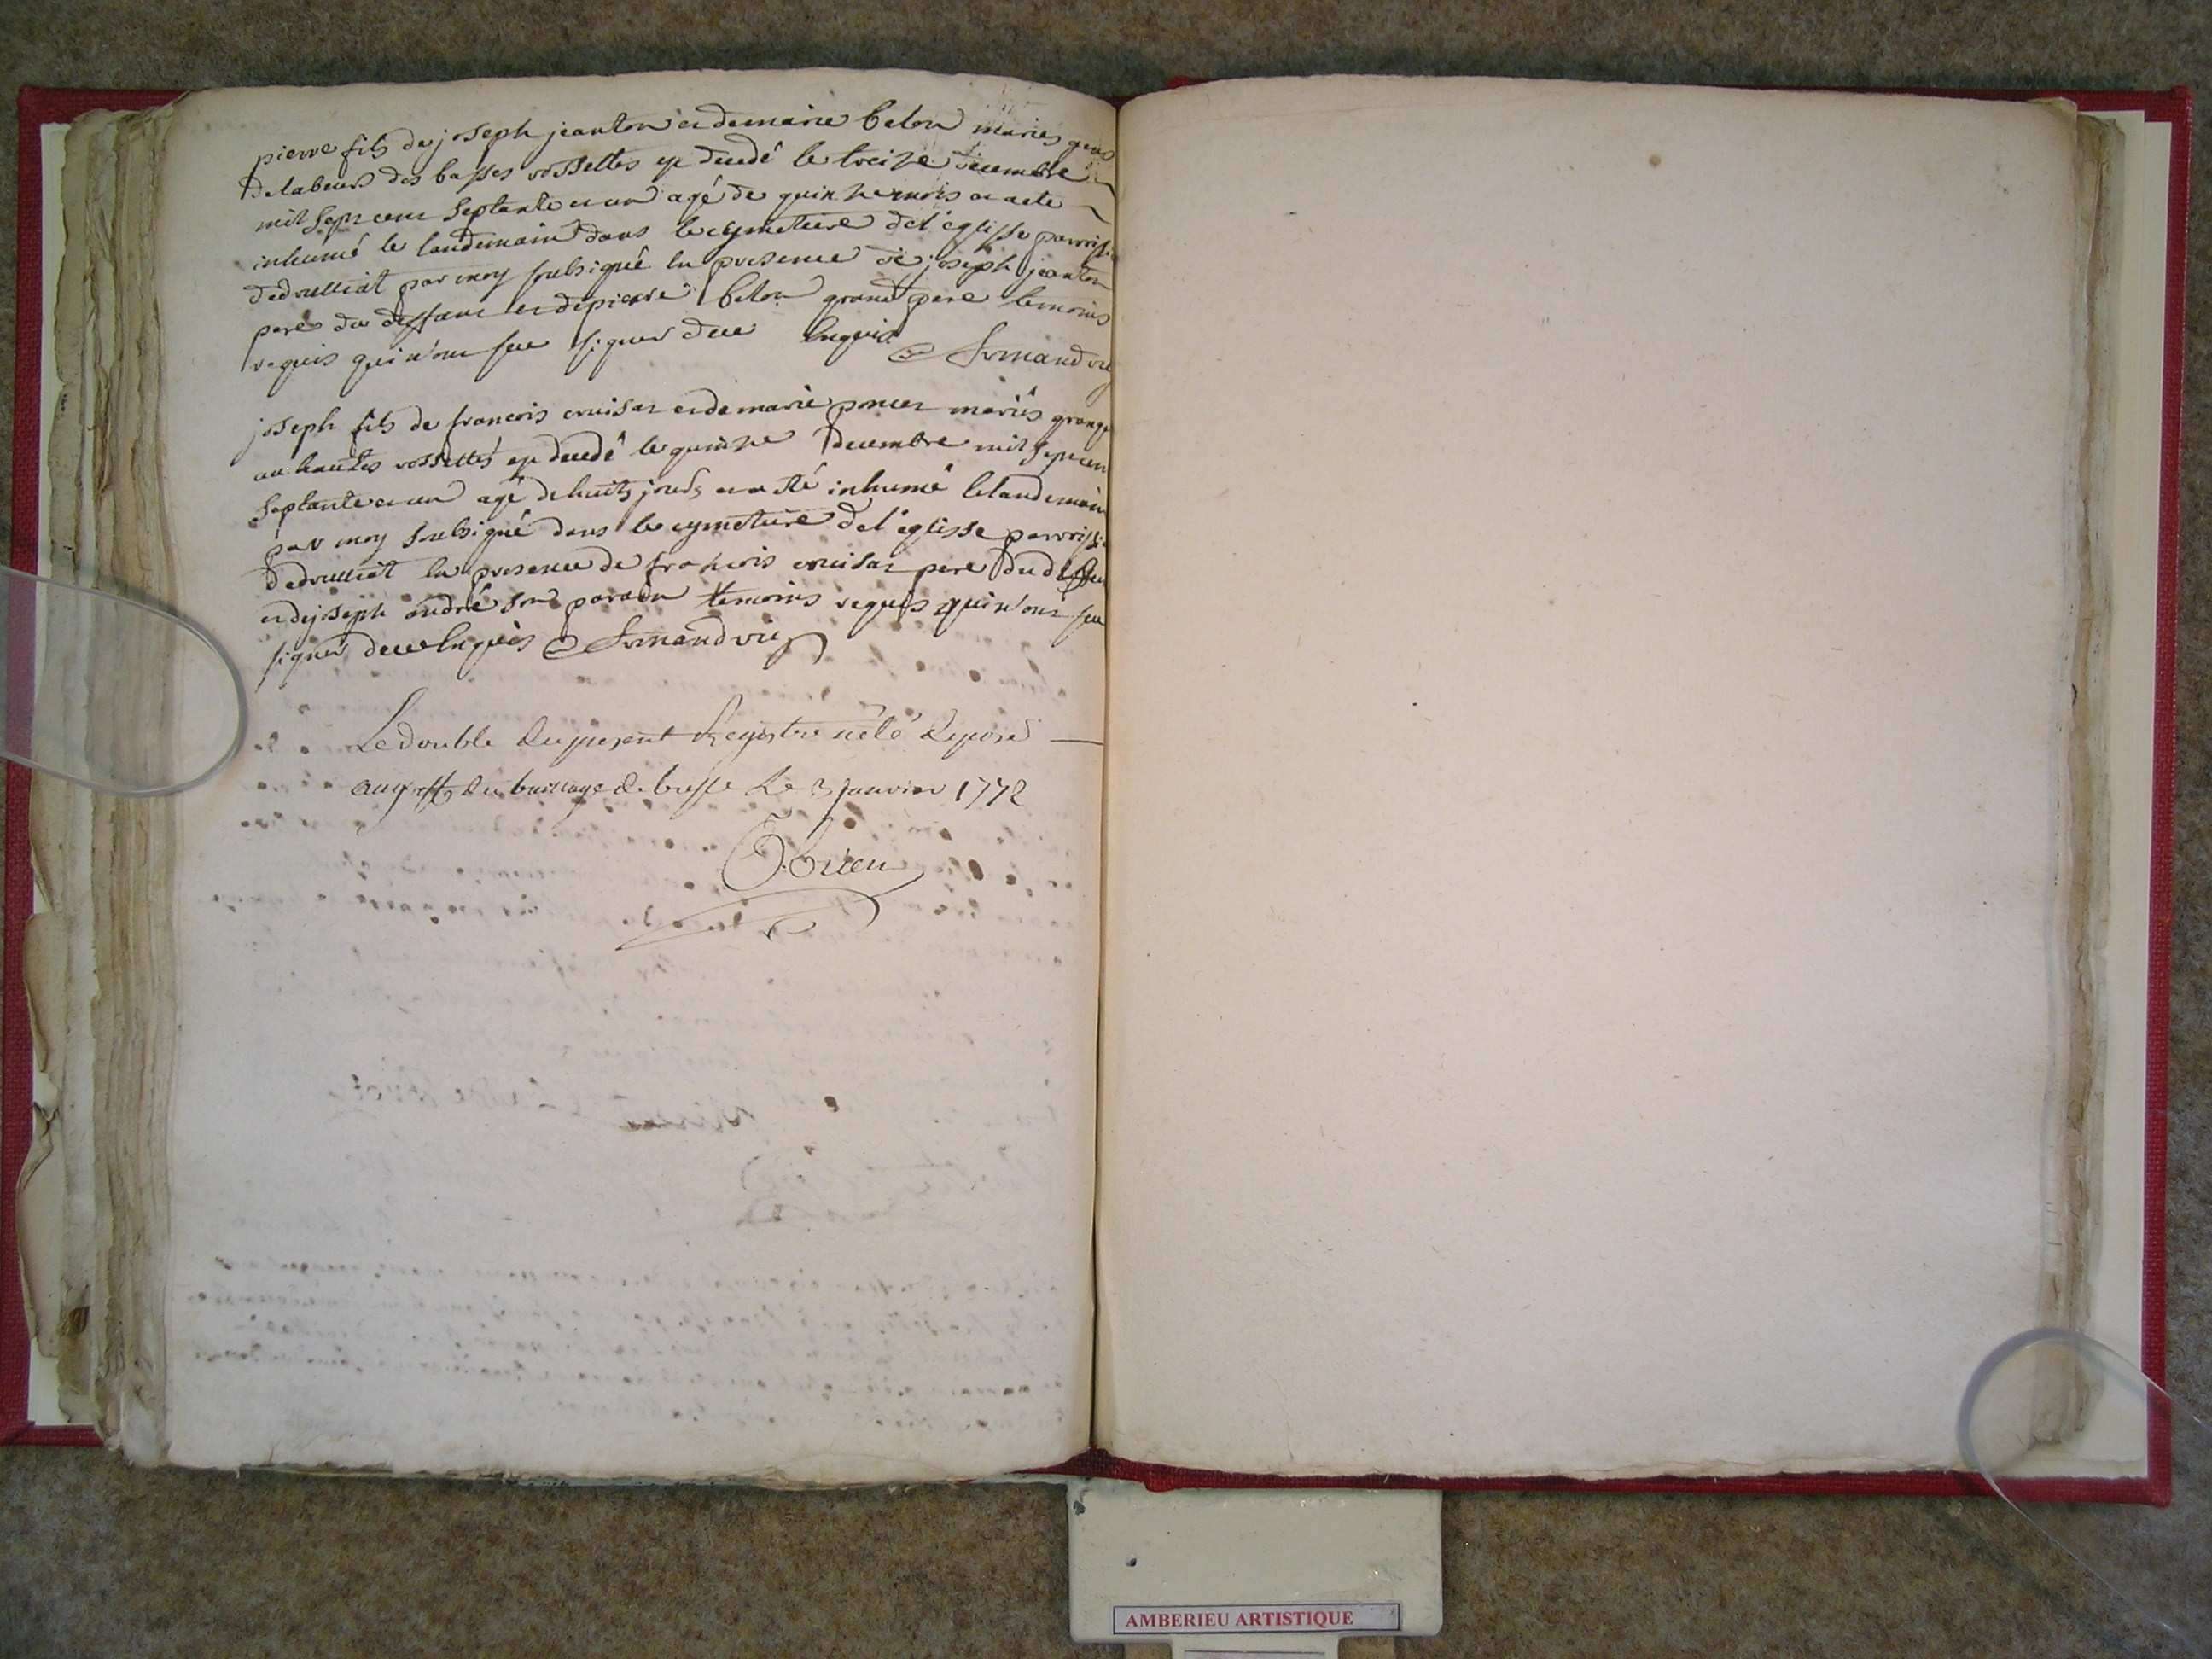 pierre fils de joseph jeanton et de marie belon mariés gens
de labeur des basses vossettes est decedé le treize decembre
mil sept cent septante et un agé de quinze mois et a ete
inhumé le landemain dans le cymetiere de l'eglisse parroissi
de drulliat par moy subsigné en presence de joseph jeanton
pere du deffunt et de pierre belon grand pere temoins
requis qui n'ont sceu signer de ce enquis
joseph fils de francois cruisat et de marie poncet mariés grange
au hautes vossettes est decedé le quinze decembre mil sept cen
septante et un agé de huit jours et a eté inhumé le landemain
par moy soubsigné dans le cymetiere de l'eglisse parroissi
de drulliat en presence de francois cruisat pere du deffun
et de joseph andré son parain temoins requis qui n'ont sceu
signer de ce enquis
Le double du present Registre a eté deposé
au greffe du bailliage de bresse Le 3 janvier 1772
AMBERIEU ARTISTIQUE